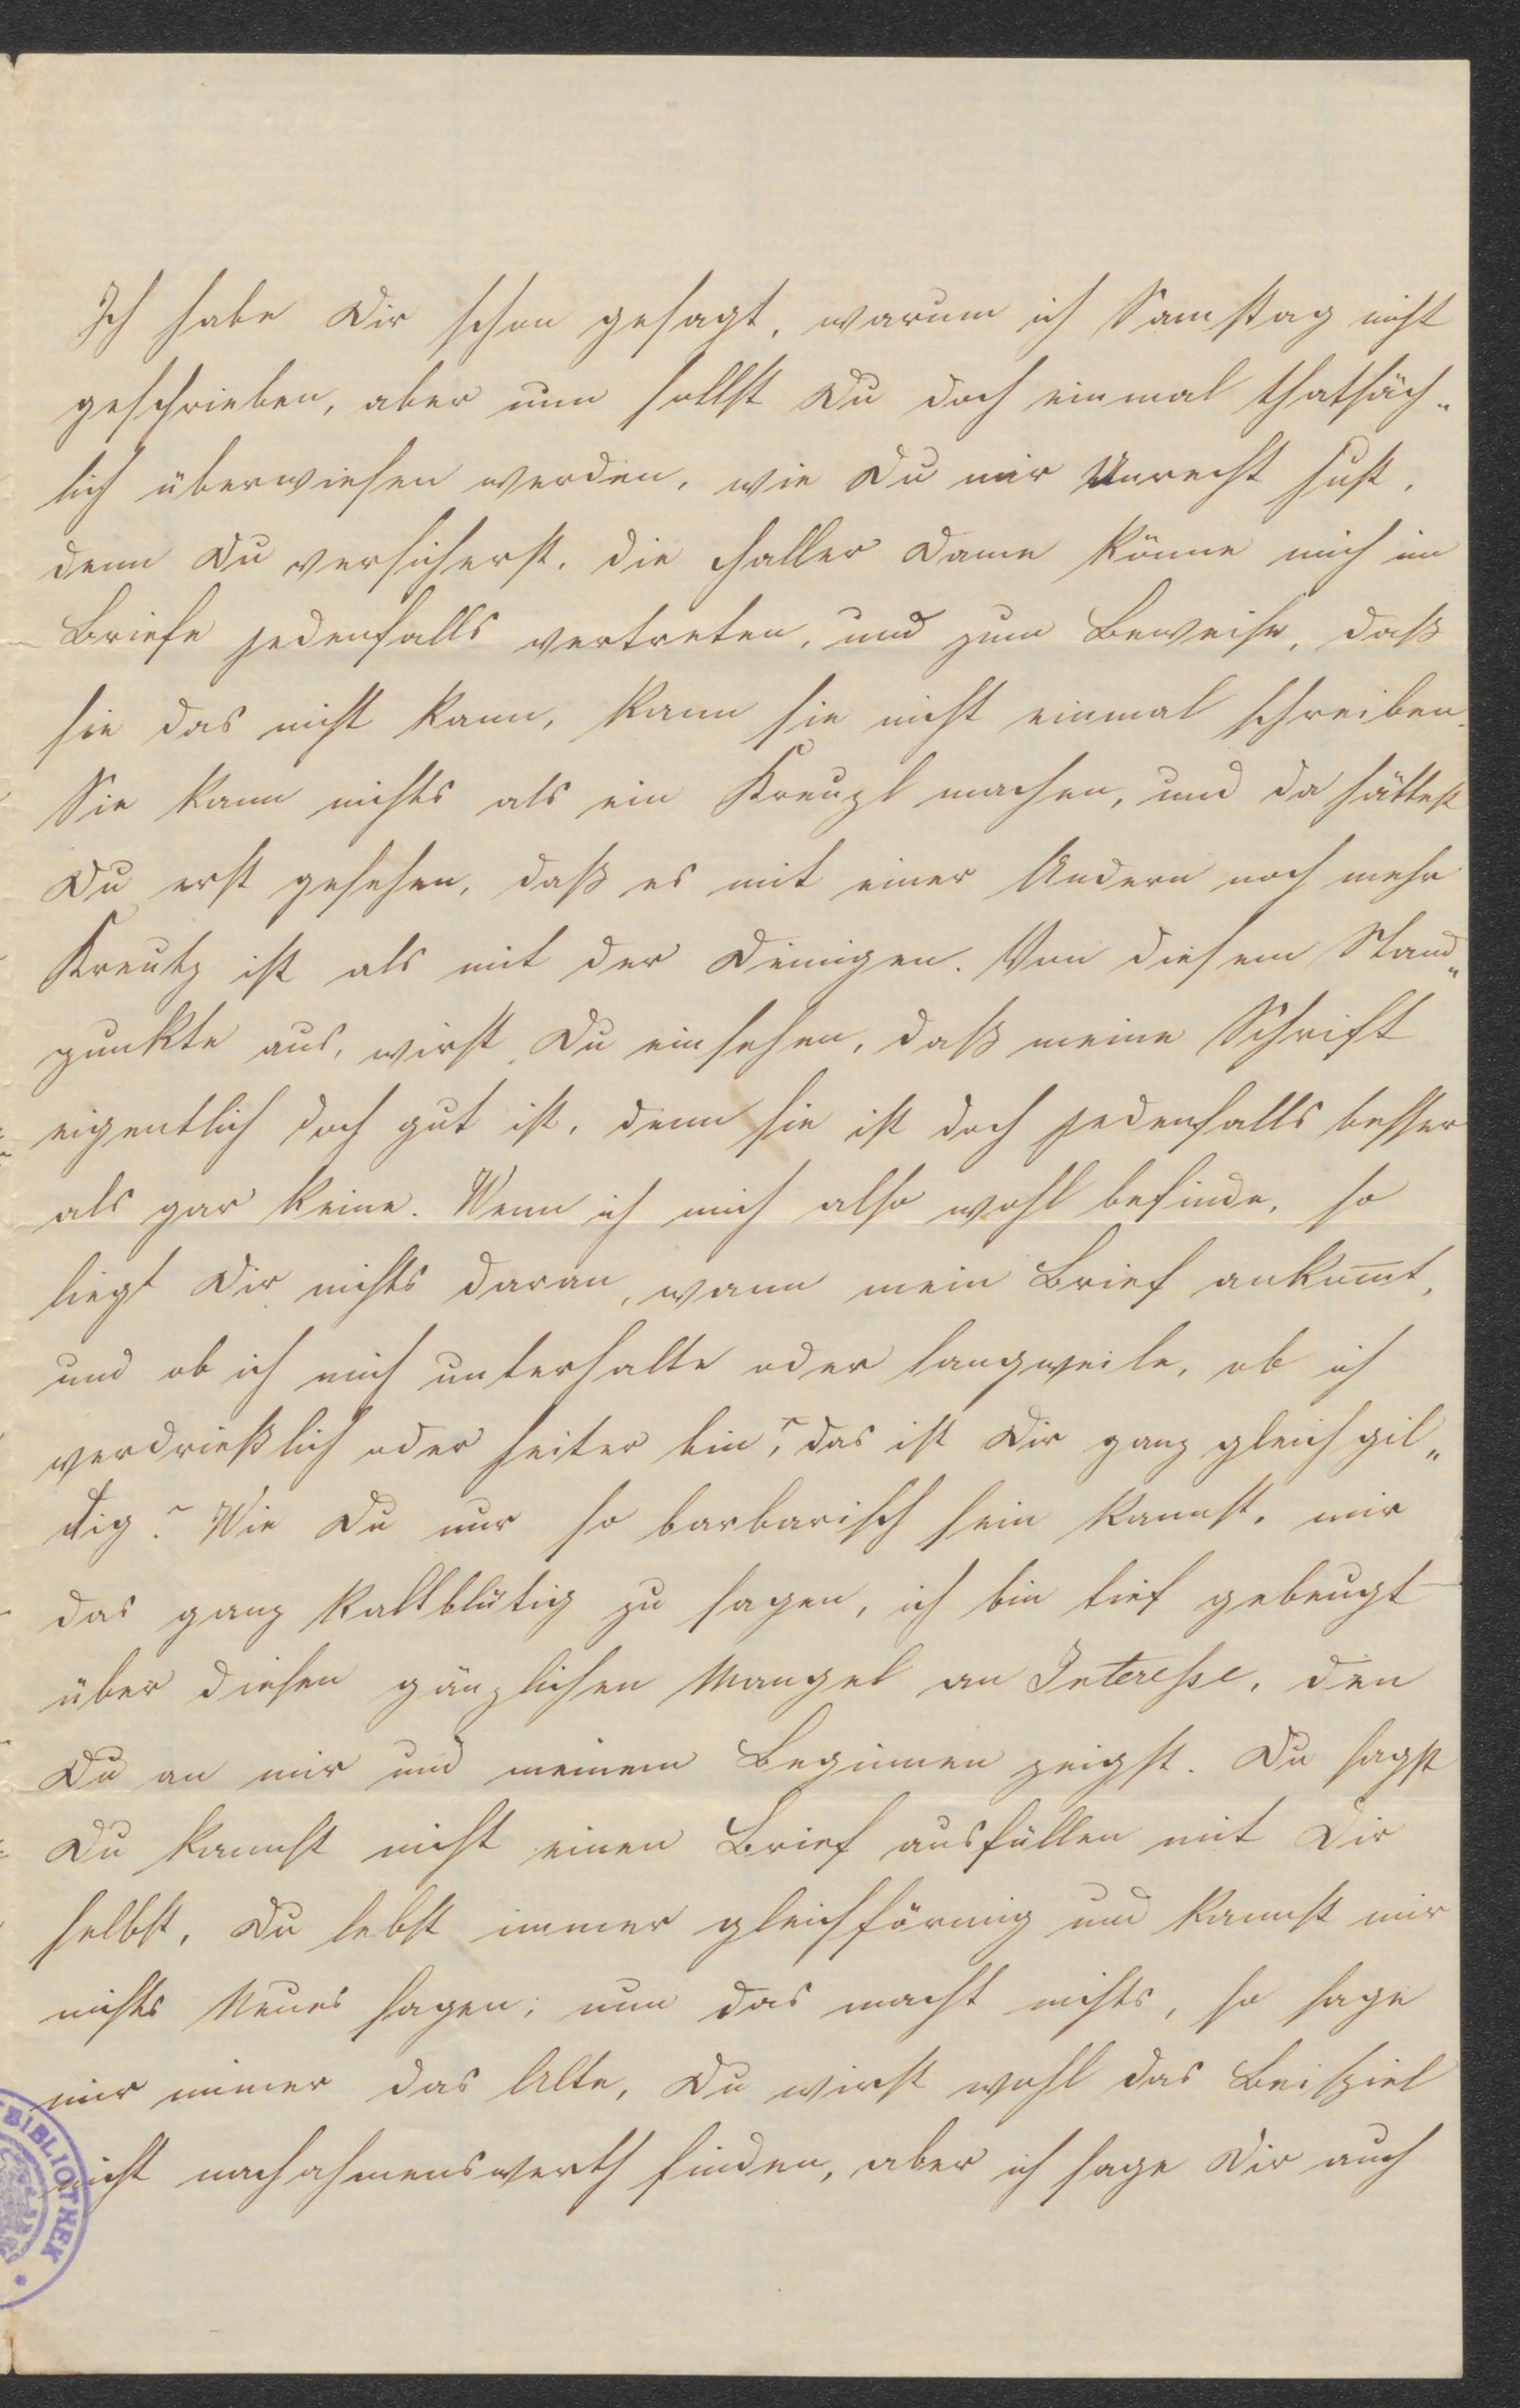 Ich habe Dir schon gesagt, warum ich Samstag nicht
geschrieben, aber nun sollst Du doch einmal thatsäch„
lich überwiesen werden, wie Du mir Unrecht thust,
denn Du versicherst, die Haller Dame könne mich im
Briefe jedenfalls vertreten, und zum Beweise, daß
sie das nicht kann, kann sie nicht einmal schreiben.
Sie kann nichts als ein Kreuzl machen, und da hättest
Du erst gesehen, daß es mit einer Andern noch mehr
Kreutz ist als mit der Deinigen. Von diesem Stand„
punkte aus, wirst Du einsehen, daß meine Schrift
eigentlich doch gut ist, denn sie ist doch jedenfalls besser
als gar keine. Wenn ich mich also wohl befinde, so
liegt Dir nichts daran, wann mein Brief ankom̅t,
und ob ich mich unterhalte oder langweile, ob ich
verdrießlich oder heiter bin, das ist Dir ganz gleichgil„
tig? Wie Du nur so barbarisch sein kannst, mir
das ganz kaltblütig zu sagen, ich bin tief gebeugt
über diesen gänzlichen Mangel an Interesse, den
Du an mir und meinem Beginnen zeigst. Du sagst
Du kannst nicht einen Brief ausfüllen mit Dir
selbst, Du lebst immer gleichförmig und kannst mir
nichts Neues sagen; nun das macht nichts, so sage
mir immer das Alte, Du wirst wohl das Beispiel
nicht nachahmenswerth finden, aber ich sage Dir auch
BIBLIOTHEK